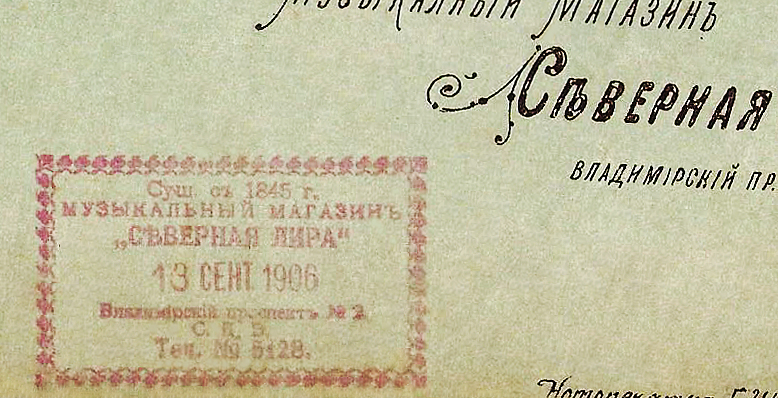 МУЗЫКАЛЬНЫЙ МАГАЗИНЪ
СѢВЕРНАЯ
ВЛАДИМІРСКІЙ ПР.
Сущ. съ 1845 г.
МУЗЫКАЛЬНЫЙ МАГАЗИНЪ
„СѢВЕРНАЯ ЛИРА“
13 СЕНТ 1906
Владимірскій проспектъ № 2.
С. П. Б.
Тел. № 5128.
Нотопечатня